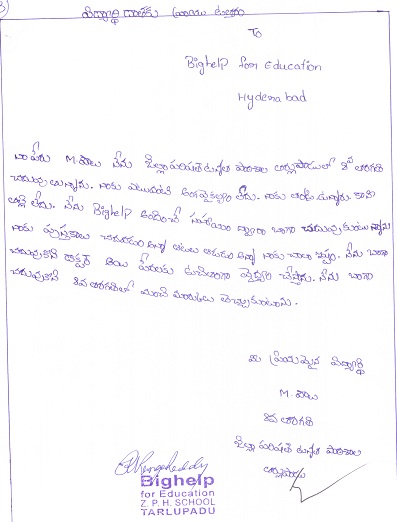 విద్యార్థి దాతకు వ్రాయు ఉత్తరం
To
Bighelp for Education
Hyderabad
నా పేరు M. పాలు నేను జిల్లా పరిషత్ ఉన్నత పాఠశాల తర్లుపాడులో 8వ తరగతి
చదువుతున్నాను. నాకు ఎటువంటి అంగవైకల్యం లేదు. నాకు తండ్రి ఉన్నారు కాని
తల్లి లేదు. నేను Bighelp అందించే సహాయం ద్వారా బాగా చదువుకుంటున్నాను
నాకు పుస్తకాలు చదవడం అన్నా ఆటలు ఆడడం అన్నా నాకు చాలా ఇష్టం. నేను బాగా
చదువుకొని డాక్టర్ అయి పేదలకు ఉచితంగా వైద్యం చేస్తాను. నేను బాగా
చదువుకొని 8వ తరగతిలో మంచి మార్కులు తెచ్చుకుంటాను.
మీ ప్రియమైన విద్యార్థి
M. పాలు
8వ తరగతి
జిల్లా పరిషత్ ఉన్నత పాఠశాల
తర్లుపాడు
Bighelp
for Education
Z. P. H. SCHOOL
TARLUPADU